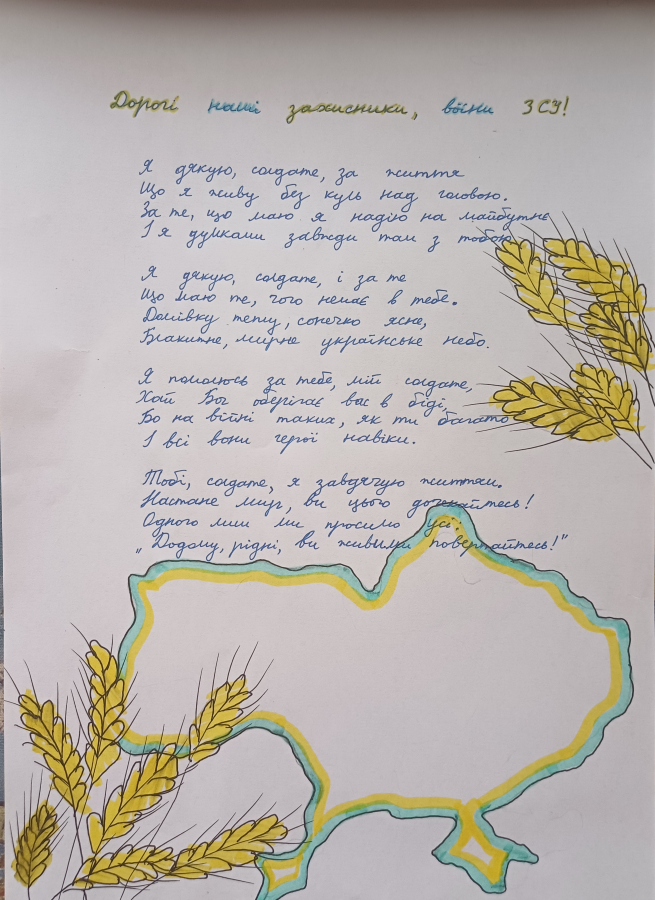 Дорогі наші захисники, воїни ЗСУ!
Я дякую, солдате, за життя
Що я живу без куль над головою.
За те, що маю я надію на майбутнє
І я думками завжди там з тобою.
Я дякую, солдате, і за те
Що маю те, чого немає в тебе.
Домівку теплу, сонечко ясне,
Блакитне, мирне українське небо.
Я помолюсь за тебе, мій солдате,
Хай Бог оберігає вас в біді,
Бо на війні таких, як ти багато
І всі вони герої навіки.
Тобі, солдате, я завдячую життям.
Настане мир, ви цього дочекайтесь!
Одного лиш ми просимо усі:
„Додому, рідні, ви живими повертайтесь!"